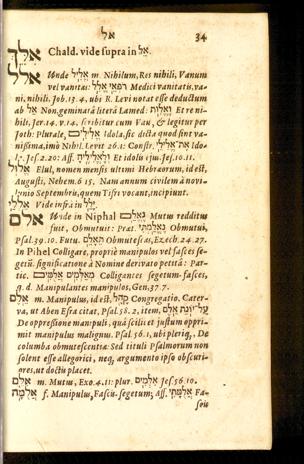 אל 34
אלך Chald. vide supra in אל.
אלל Unde אליל m. Nihilum, Res nihili, Vanum
vel vanitas: רפאי אליל Medici vanitatis, va-
ni, nihili, Job. 13. 4. ubi R. Levi notat esse deductum
ab אל Non, geminatâ literâ Lamed: Et re ni-
hili, Jer. 14. v. 14. scribitur cum Vau, & legitur per
Joth: Plurale, אלילים Idola, sic dicta quòd sint va-
nissima, imò Nihil Levit 26. 1: Constr. Ido-
la, Jes. 2. 20: Aff. Et idolis ejus, Jes. 10. 11.
אלול Elul, nomen mensis ultimi Hebræorum, id est,
Augusti, Nehem. 6 15. Nam annum civilem à novi-
lunio Septembris, quem Tisri vocant, incipiunt.
אללי Vide infrà in ילל.
אלם Unde in Niphal נאלם Mutus redditus
fuit, Obmutuit: Præt. נאלמתי Obmutui,
Psal. 39. 10. Futu. תאלם Obmutesces, Ezech. 24. 27.
In Pihel Colligare, propriè manipulos vel fasces se-
getũ. significatione à Nomine derivato petitâ: Par-
tic. מאלמים אלמים Colligantes segetum fasces,
q. d. Manipulantes manipulos, Gen. 37. 7.
אלם m. Manipulus, id est, קהל Congregatio, Cater-
va, ut Aben Esra citat, Psal. 58. 2. item,
על יונת אלם
De oppressione manipuli, quâ scilicet justum oppri-
mit manipulus malignus. Psal. 56. 1. ubi plerique, De
columba obmutescentiæ: Sed tituli Psalmorum non
solent esse allegorici, neq, argumento ipso obscuri-
ores, ut doctis placet.
אלם m. Mutus, Exo. 4. 11: plur. אלמים Jes. 56. 10.
אלמה f. Manipulus, Fascis segetum; Aff. אלמתי Fa-
scis